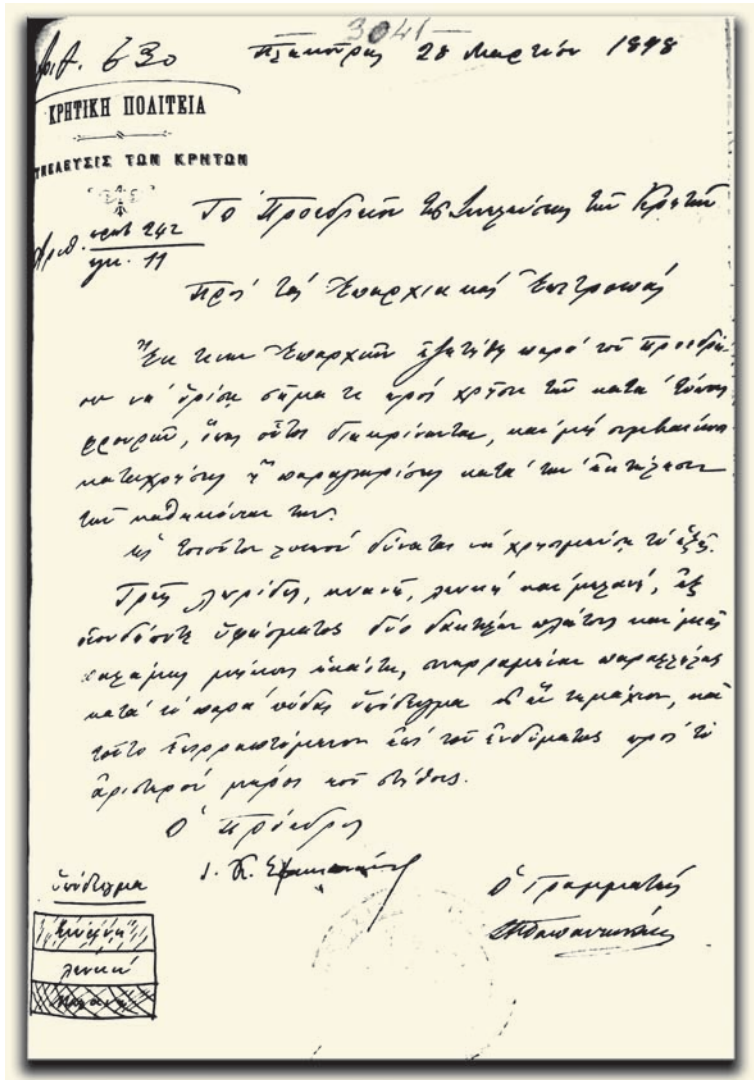 3041
Αριθ. 630
Πλακούρες 28 Μαρτίου 1898
ΚΡΗΤΙΚΗ ΠΟΛΙΤΕΙΑ
ΣΥΝΕΛΕΥΣΙΣ ΤΩΝ ΚΡΗΤΩΝ
Αριθ. πρωτ 242
εγκ. 11
Τὸ Προεδρεῖον τῆς Συνελεύσεως τῶν Κρητῶν
Πρὸς τὰς Ἐπαρχιακὰς Ἐπιτροπάς
Ἔκ τινων Ἐπαρχιῶν ἐζητήθη παρὰ τοῦ Προεδρεί-
ου νὰ ὁρίσῃ σῆμά τι πρὸς χρῆσιν τῶν κατὰ τόπους
φρουρῶν, ἵνα οὗτοι διακρίνωνται, καὶ μὴ συμβαίνωσι
καταχρήσεις ἢ παραγνωρίσεις κατὰ τὴν ἐκτέλεσιν
τῶν καθηκόντων των.
Ὡς τοιοῦτον λοιπὸν δύναται νὰ χρησιμεύσῃ τὸ ἑξῆς.
Τρεῖς λωρίδες, κυανῆ, λευκὴ καὶ μελανή, ἐξ
οἱουδήποτε ὑφάσματος δύο δακτύλων πλάτους καὶ μιᾶς
παλάμης μήκους ἑκάστη, συνερραμμέναι παραλλήλως
κατὰ τὸ παρὰ πόδας ὑπόδειγμα εἰς ἓν τεμάχιον, καὶ
τοῦτο ἐπιρραπτόμενον ἐπὶ τοῦ ἐνδύματος πρὸς τὸ
ἀριστερὸν μέρος τοῦ στήθους.
Ὁ Πρόεδρος
Ι. Κ. Σφακιανάκης
Ὁ Γραμματεύς
ὑπόδειγμα
Κυανῆ
λευκή
Μελανή